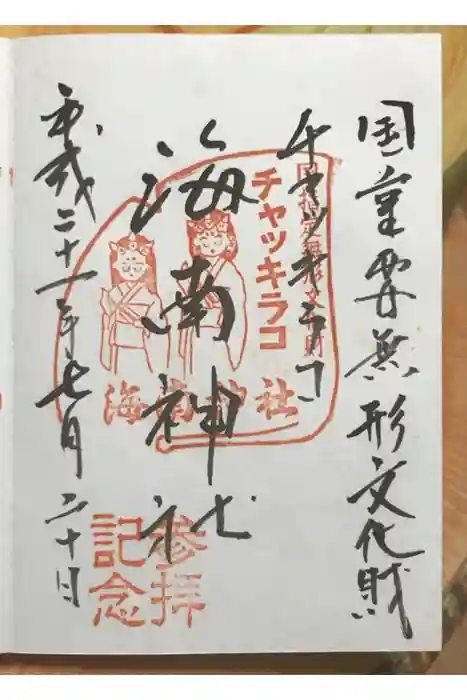 国重要無形文化財
チャッキラコ
海南神社
平成二十一年七月二十日
国指定無形文化財
チャッキラコ
海南神社
参拝
記念